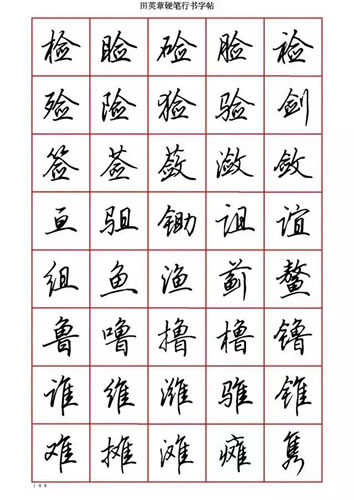 田英章硬笔行书字帖
检睑硷脸裣
殓险猃验剑
签莶蔹潋敛
亘驵锄诅谊
组鱼渔蓟鳌
鲁噜撸橹镥
谁维潍骓锥
难摊滩瘫隽